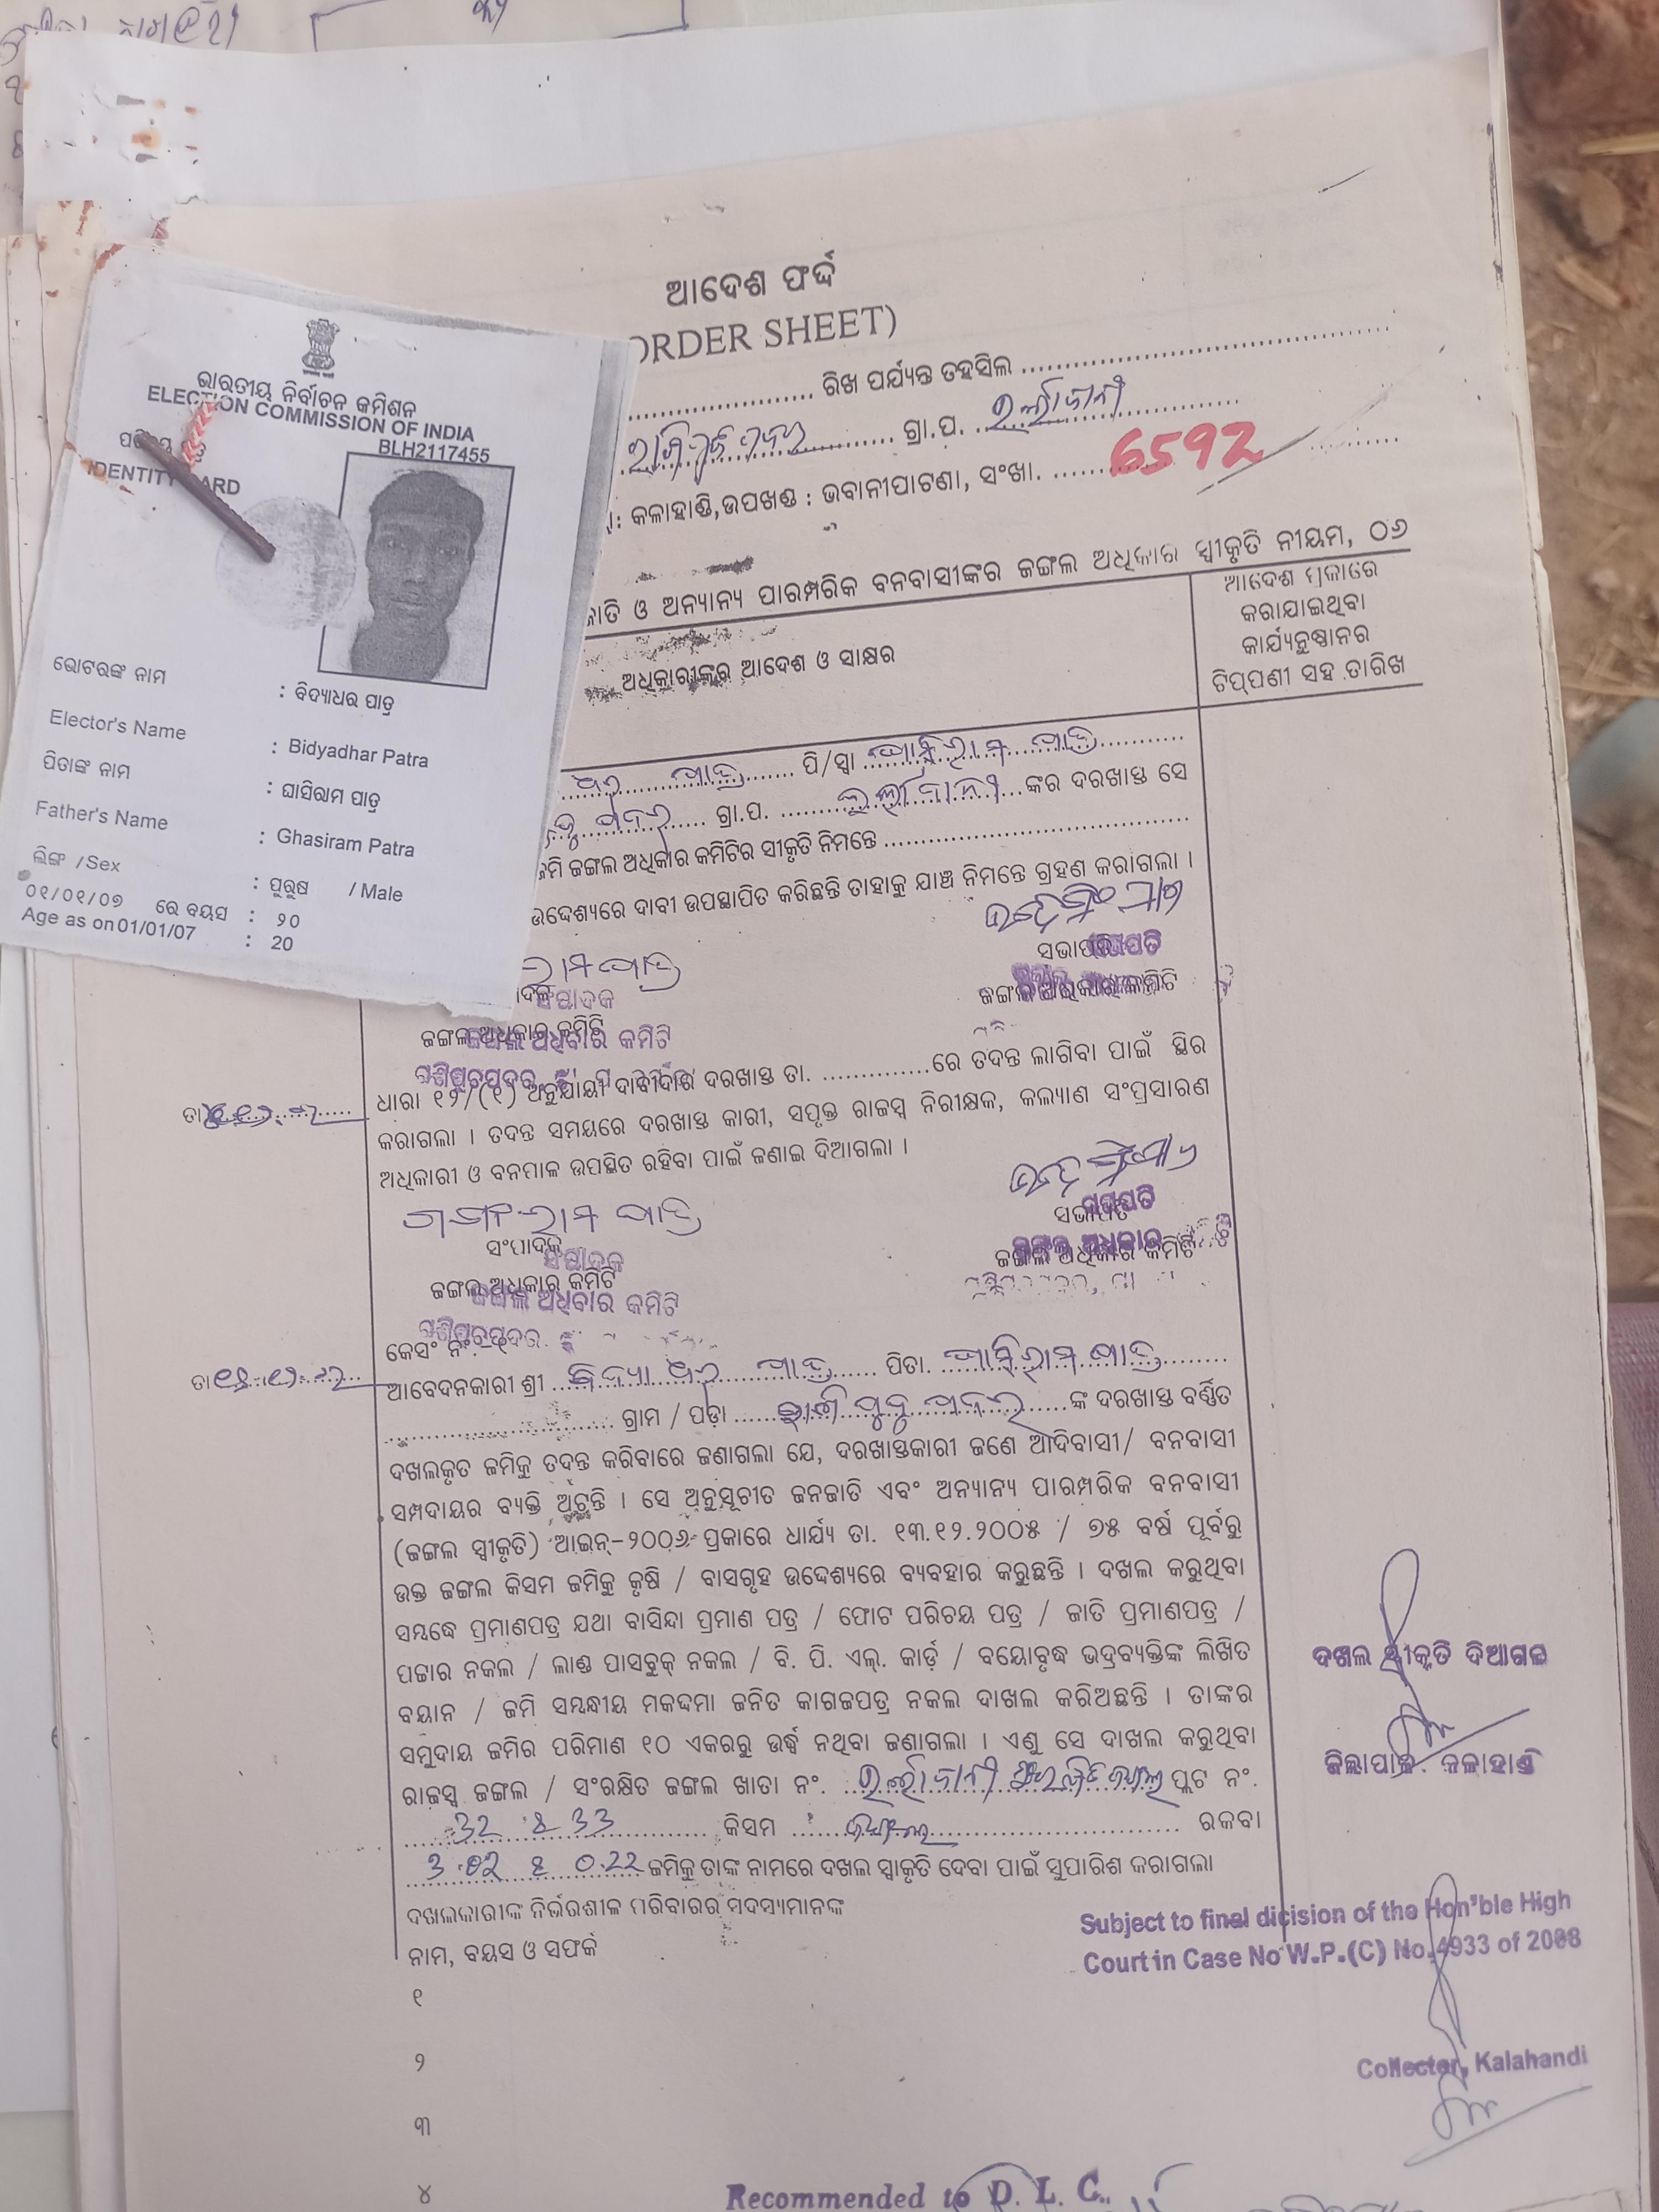 ଆଦେଶ ଫର୍ଦ୍ଦ
ORDER SHEET)
ରିଖ ପର୍ଯ୍ୟନ୍ତ ତହସିଲ
ଗ୍ରା.ପ.
କଳାହାଣ୍ଡି, ଉପଖଣ୍ଡ : ଭବାନୀପାଟଣା, ସଂଖା. 6592
ଜାତି ଓ ଅନ୍ୟାନ୍ୟ ପାରମ୍ପରିକ ବନବାସୀଙ୍କର ଜଙ୍ଗଲ ଅଧିକାର ସ୍ୱୀକୃତି ନୀୟମ, ୦୬
ଅଧିକାରୀଙ୍କର ଆଦେଶ ଓ ସାକ୍ଷର
ଆଦେଶ ପ୍ରକାରେ
କରାଯାଇଥିବା
କାର୍ଯ୍ୟନୁଷ୍ଠାନର
ଟିପ୍ପଣୀ ସହ ତାରିଖ
ଭାରତୀୟ ନିର୍ବାଚନ କମିଶନ
ELECTION COMMISSION OF INDIA
BLH2117455
IDENTITY CARD
ଭୋଟରଙ୍କ ନାମ : ବିଦ୍ୟାଧର ପାତ୍ର
Elector's Name : Bidyadhar Patra
ପିତାଙ୍କ ନାମ : ଘାସିରାମ ପାତ୍ର
Father's Name : Ghasiram Patra
ଲିଙ୍ଗ /Sex : ପୁରୁଷ / Male
୦୧/୦୧/୦୭ ରେ ବୟସ : ୨୦
Age as on 01/01/07 : 20
ଧର ପାତ୍ର ପି/ସ୍ୱା ଘାସିରାମ ପାତ୍ର
ଗ୍ରା.ପ. ଙ୍କର ଦରଖାସ୍ତ ସେ
ଜମି ଜଙ୍ଗଲ ଅଧିକାର କମିଟିର ସୀକୃତି ନିମନ୍ତେ
ଉଦ୍ଦେଶ୍ୟରେ ଦାବୀ ଉପସ୍ଥାପିତ କରିଛନ୍ତି ତାହାକୁ ଯାଞ୍ଚ ନିମନ୍ତେ ଗ୍ରହଣ କରାଗଲା ।
ସଂପାଦକ ସଭାପତି
ଜଙ୍ଗଲ ଅଧିକାର କମିଟି ଜଙ୍ଗଲ ଅଧିକାର କମିଟି
ଧାରା ୧୨/(୧) ଅନୁଯାୟୀ ଦାବୀଦାର ଦରଖାସ୍ତ ତା. ରେ ତଦନ୍ତ ଲାଗିବା ପାଇଁ ସ୍ଥିର
କରାଗଲା । ତଦନ୍ତ ସମୟରେ ଦରଖାସ୍ତ କାରୀ, ସପୃକ୍ତ ରାଜସ୍ୱ ନିରୀକ୍ଷକ, କଲ୍ୟାଣ ସଂପ୍ରସାରଣ
ଅଧିକାରୀ ଓ ବନପାଳ ଉପସ୍ଥିତ ରହିବା ପାଇଁ ଜଣାଇ ଦିଆଗଲା ।
ସଂପାଦକ ସଭାପତି
ଜଙ୍ଗଲ ଅଧିକାର କମିଟି ଜଙ୍ଗଲ ଅଧିକାର କମିଟି
କେସଂ ନଂ
ଆବେଦନକାରୀ ଶ୍ରୀ ବିଦ୍ୟା ଧର ପାତ୍ର ପିତା. ଘାସିରାମ ପାତ୍ର
ଗ୍ରାମ / ପଡ଼ା ଙ୍କ ଦରଖାସ୍ତ ବର୍ଣ୍ଣିତ
ଦଖଲକୃତ ଜମିକୁ ତଦନ୍ତ କରିବାରେ ଜଣାଗଲା ଯେ, ଦରଖାସ୍ତକାରୀ ଜଣେ ଆଦିବାସୀ/ ବନବାସୀ
ସମ୍ପଦାୟର ବ୍ୟକ୍ତି ଅଟନ୍ତି । ସେ ଅନୁସୂଚୀତ ଜନଜାତି ଏବଂ ଅନ୍ୟାନ୍ୟ ପାରମ୍ପରିକ ବନବାସୀ
(ଜଙ୍ଗଲ ସ୍ୱୀକୃତି) ଆଇନ୍-୨୦୦୬ ପ୍ରକାରେ ଧାର୍ଯ୍ୟ ତା. ୧୩.୧୨.୨୦୦୫ / ୭୫ ବର୍ଷ ପୂର୍ବରୁ
ଉକ୍ତ ଜଙ୍ଗଲ କିସମ ଜମିକୁ କୃଷି / ବାସଗୃହ ଉଦ୍ଦେଶ୍ୟରେ ବ୍ୟବହାର କରୁଛନ୍ତି । ଦଖଲ କରୁଥିବା
ସମ୍ଭଦ୍ଧେ ପ୍ରମାଣପତ୍ର ଯଥା ବାସିନ୍ଦା ପ୍ରମାଣ ପତ୍ର / ଫୋଟ ପରିଚୟ ପତ୍ର / ଜାତି ପ୍ରମାଣପତ୍ର /
ପଟ୍ଟାର ନକଲ / ଲାଣ୍ଡ ପାସବୁକ୍ ନକଲ / ବି. ପି. ଏଲ୍. କାର୍ଡ଼ / ବୟୋବୃଦ୍ଧ ଭଦ୍ରବ୍ୟକ୍ତିଙ୍କ ଲିଖିତ
ବୟାନ / ଜମି ସମ୍ଭନ୍ଧୀୟ ମକଦ୍ଦମା ଜନିତ କାଗଜପତ୍ର ନକଲ ଦାଖଲ କରିଅଛନ୍ତି । ତାଙ୍କର
ସମୁଦାୟ ଜମିର ପରିମାଣ ୧୦ ଏକରରୁ ଉର୍ଦ୍ଧ୍ୱ ନଥିବା ଜଣାଗଲା । ଏଣୁ ସେ ଦାଖଲ କରୁଥିବା
ରାଜସ୍ୱ ଜଙ୍ଗଲ / ସଂରକ୍ଷିତ ଜଙ୍ଗଲ ଖାତା ନଂ. ପ୍ଲଟ ନଂ.
32 & 33 କିସମ ଜଙ୍ଗଲ ରକବା
3.02 & 0.22 ଜମିକୁ ତାଙ୍କ ନାମରେ ଦଖଲ ସ୍ୱୀକୃତି ଦେବା ପାଇଁ ସୁପାରିଶ କରାଗଲା
ଦଖଲକାରୀଙ୍କ ନିର୍ଭରଶୀଳ ପରିବାରର ସଦସ୍ୟମାନଙ୍କ
ନାମ, ବୟସ ଓ ସଫର୍କ
ଦଖଲ ସ୍ୱୀକୃତି ଦିଆଗଲା
ଜିଲ୍ଲାପାଳ. କଳାହାଣ୍ଡି
Subject to final dicision of the Hon'ble High
Court in Case No W.P.(C) No.4933 of 2008
୧
୨
Collector, Kalahandi
୩
୪
Recommended to D. L. C.